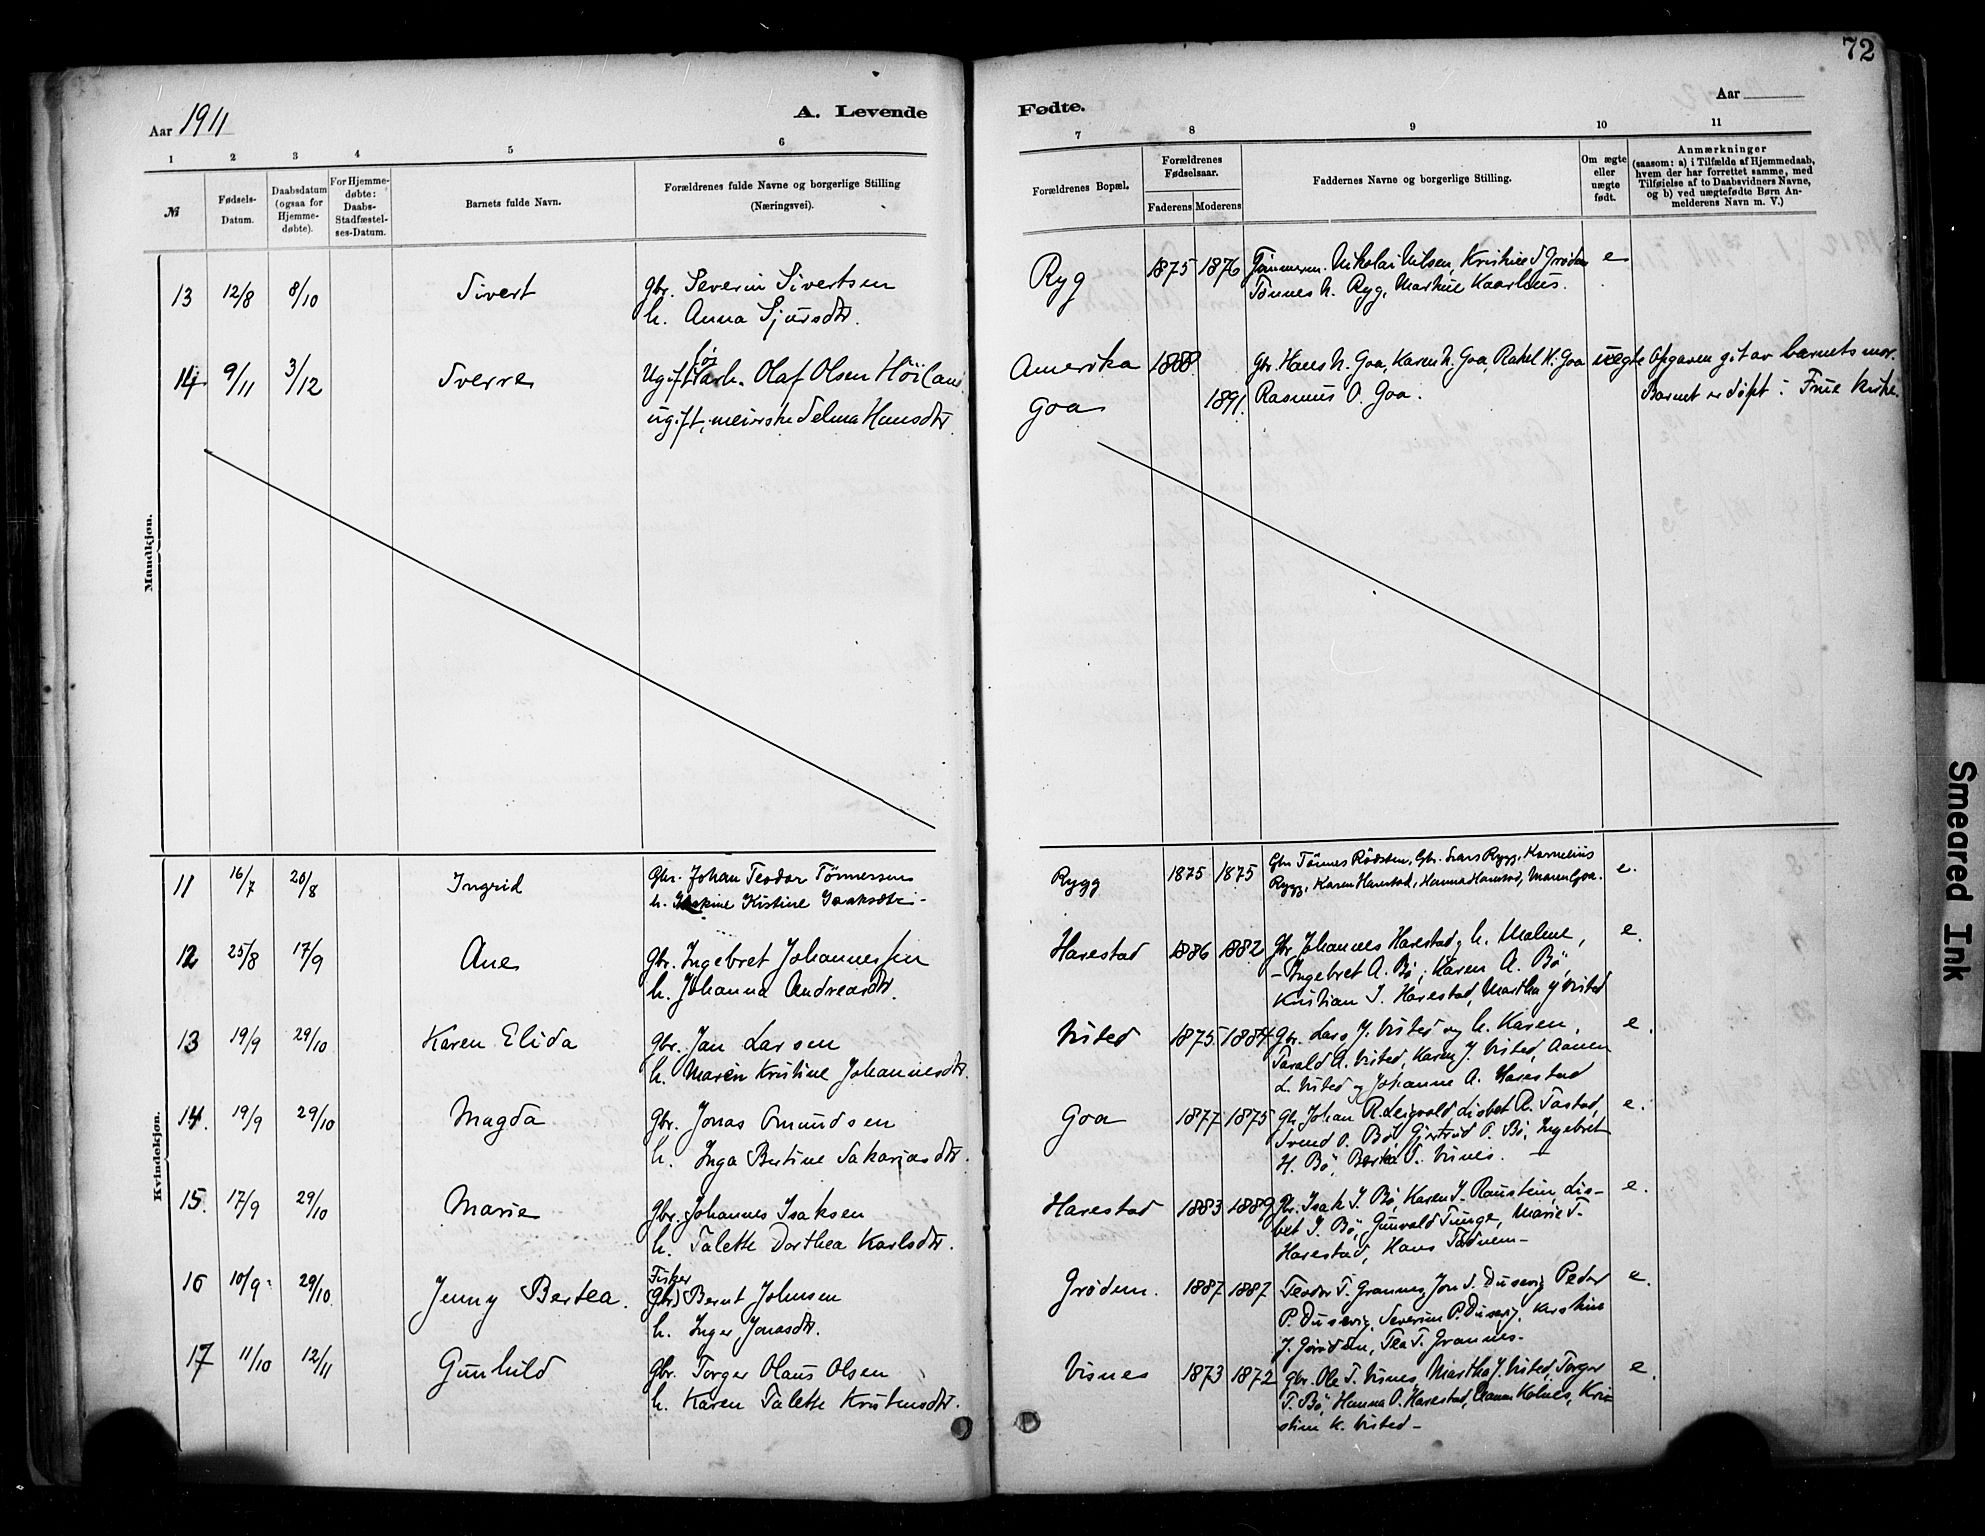 72
Aar 1911
A. Levende
Fødte.
Aar
1 2 3 4 5 6 7 8 9 10 11
№
Fødsels-
Datum.
Daabsdatum
(ogsaa for
Hjemme-
døbte).
For Hjemme-
døbte:
Daabs-
Stadfæstel-
ses-Datum.
Barnets fulde Navn.
Forældrenes fulde Navne og borgerlige Stilling
(Næringsvei).
Forældrenes Bopæl.
Forældrenes
Fødselsaar.
Faderens Moderens
Faddernes Navne og borgerlige Stilling.
Om ægte
eller
uægte
født.
Anmærkninger
(saasom: a) i Tilfælde af Hjemmedaab,
hvem der har forrettet samme, med
Tilføielse af to Daabsvidners Navne,
og b) ved uægtefødte Børn An-
melderens Navn m. V.)
Mandkjøn.
13 12/8 8/10 Sivert gbr. Severin Sivertsen Ryg 1875 1876 Tømmerm. Nikolai Nilsen, Kristine S Grødem e
h. Anna Sjursdtr. Tønnes N. Ryg, Martine Kaarhus.
14 9/11 3/12 Sverre Ugift løsarb. Olaf Olsen Höiland Amerika 1888 Gbr. Hans N. Goa, Karen N. Goa, Rakel H. Goa uegte Opgaven git av barnets mor.
ugift, meierske Selma Hansdtr Goa 1891. Rasmus O. Goa. Barnet er døpt i Frue kirke.
Kvindekjøn.
11 16/7 20/8 Ingrid Gbr. Johan Teodor Tönnessen Rygg 1875 1875 Gbr Tönnes Rödsten, Gbr. Lars Rygg, Kornelius e.
h. Kistine Isaksdtr. Rygg, Karen Harestad, Hanna Harestad, Maren Goa.
12 25/8 17/9 Ane gbr. Ingebret Johannessen Harestad 1886 1882 gbr Johannes Harestad og h. Malene, e.
h. Johanna Andreasdtr. Ingebret A. Bö, Karen A. Bö,
Kristian J. Harestad, Martha J Visted
13 19/9 29/10 Karen Elida gbr. Jan Larsen Visted 1875 1884 Gbr. Lars J. Visted og h. Karen, e.
h. Maren Kristine Johannesdtr. Tarald A. Visted, Karen J. Visted, Aanen
L. Visted og Johanne A. Harestad
14. 19/9 29/10 Magda Gbr. Jonas Omundsen Goa 1877 1875 Gbr. Johan R. Leigvold, Lisbet R. Tastad, e.
h. Inga Bertine Sakariasdtr. Svend O. Bö, Gjertrud O. Bö, Ingebret
H. Bö, Berta T. Visnes.
15. 17/9 29/10 Marie Gbr. Johannes Isaksen Harestad 1883 1889 Gbr. Isak J. Bö, Karen J. Raustein, Lis- e.
h. Talette Dorthea Karlsdtr. bet J. Bö, Gunvald Tunge, Marie T.
Harestad, Hans Tadnem
16 10/9 29/10 Jenny Bertea. Fisker (gbr) Bernt Johnsen Grødem. 1887 1887 Teodor T. Grannes, Jon S. Dusevig, Peder e.
h. Inger Jonasdtr. P. Dusevig, Severine P. Dusevig, Kristine
J. Grødem, Tea T. Grannes.
17 11/10 12/11 Gunhild gbr. Torger Olaus Olsen Visnes 1873 1872 gbr. Ole T. Visnes, Martha J. Visted, Torger e.
h. Karen Talette Kristensdtr. T. Bö, Hanna O. Harestad, Kolnes, Kri-
stine K. Visted
Smeared Ink